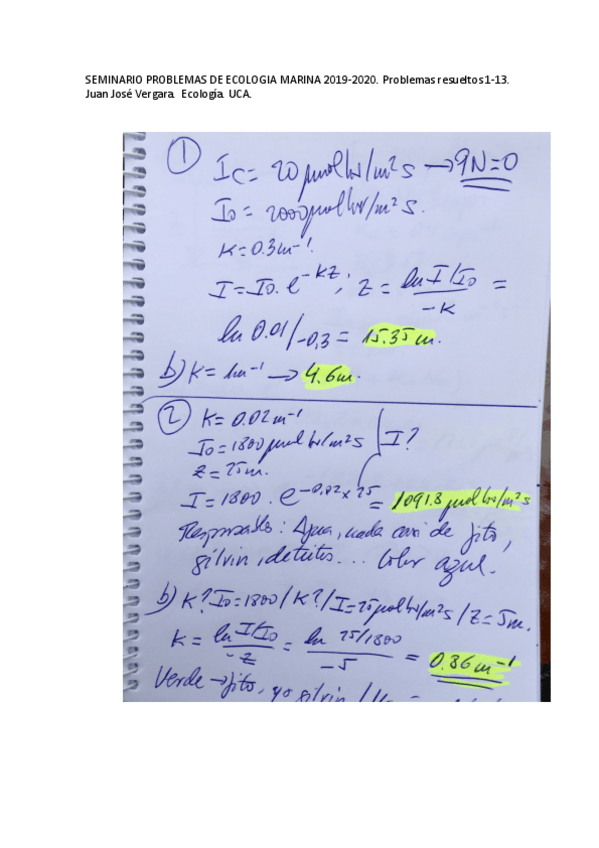 SEMINARIO PROBLEMAS DE ECOLOGIA MARINA 2019-2020. Problemas resueltos 1-13.
Juan José Vergara. Ecología. UCA.
① Ic = 20 μmol hν/m²s → PN=0
I₀ = 2000 μmol hν/m² s.
K = 0.3 m⁻¹.
I = I₀. e^-KZ ; Z = ln I/I₀ / -K =
ln 0.01/-0,3 = 15.35 m.
b) K = 1m⁻¹ → 4.6 m.
② K = 0.02 m⁻¹
I₀ = 1800 μmol hν/m²s | I?
Z = 25 m.
I = 1800 . e^-0,02 x 25 = 1091.8 μmol hν/m²s
Responsable: Agua, nada casi de fito,
gilvin, detritus... Color azul.
b) K? I₀ = 1800 / K? / I = 25 μmol hν/m²s / Z = 5m.
K = ln I/I₀ / -Z = ln 25/1800 / -5 = 0.86 m⁻¹
Verde → fito, y gilvin /